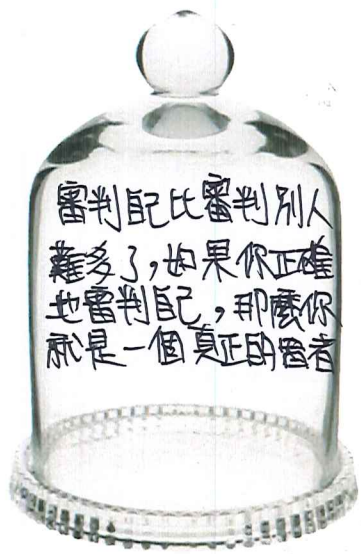 審判自己比審判別人
難多了,如果你正確
地審判自己,那麼你
就是一個真正的智者